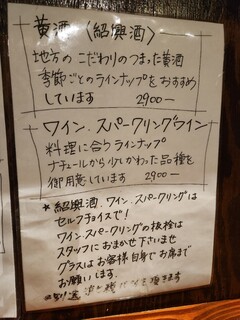 黄酒〈紹興酒〉
地方のこだわりのつまった黄酒
季節ごとのラインナップをおすすめ
しています 2900ー
ワイン.スパークリングワイン
料理に合うラインナップ
ナチュールから少しかわった品種を
御用意しています 2900ー
*紹興酒.ワイン.スパークリングは
セルフチョイスで!
ワイン.スパークリングの抜栓は
スタッフにおまかせ下さいませ
グラスはお客様自身でお席まで
お願いします.
頂きます